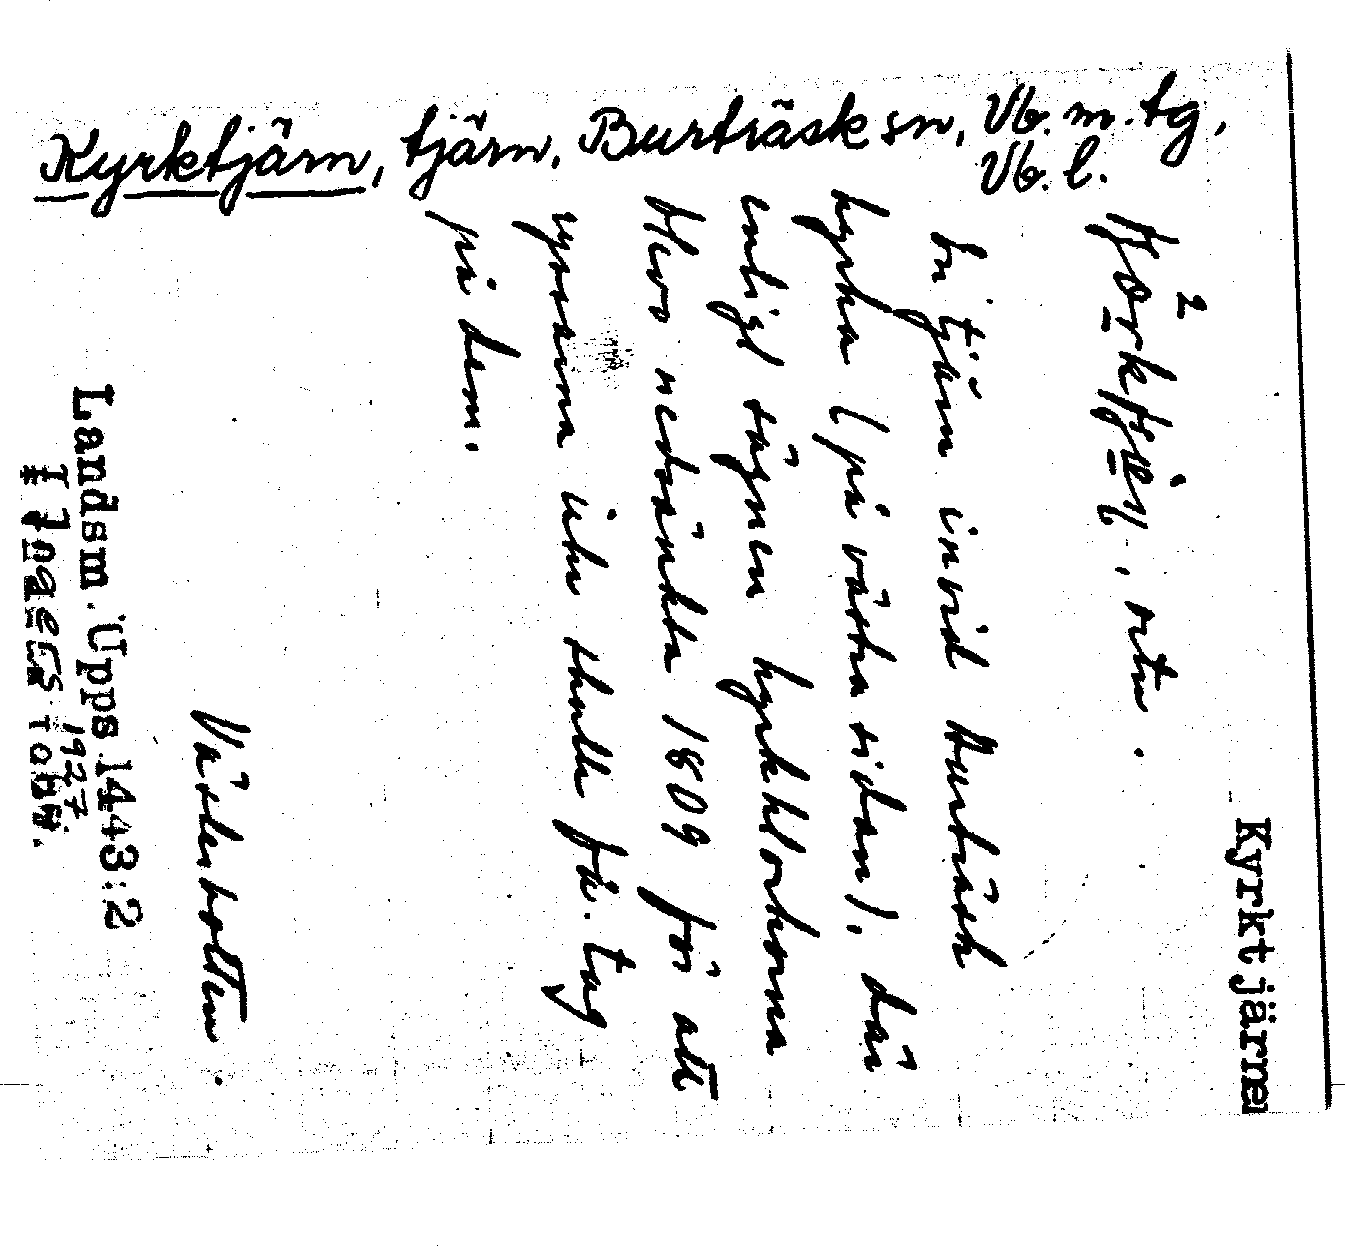 Kyrktjärn, tjärn, Burträsk sn, Vb. m. tg,
Vb. l.
Kyrktjärnen
ortn.
En tjärn invid Burträsk
kyrka (på västra sidan), där
enligt sägnen kyrkklockorna
blevo nedsänkta 1809 för att
ryssarna icke skulle få tag
på dem.
Västerbotten.
Landsm. Upps. 1443:2
1927